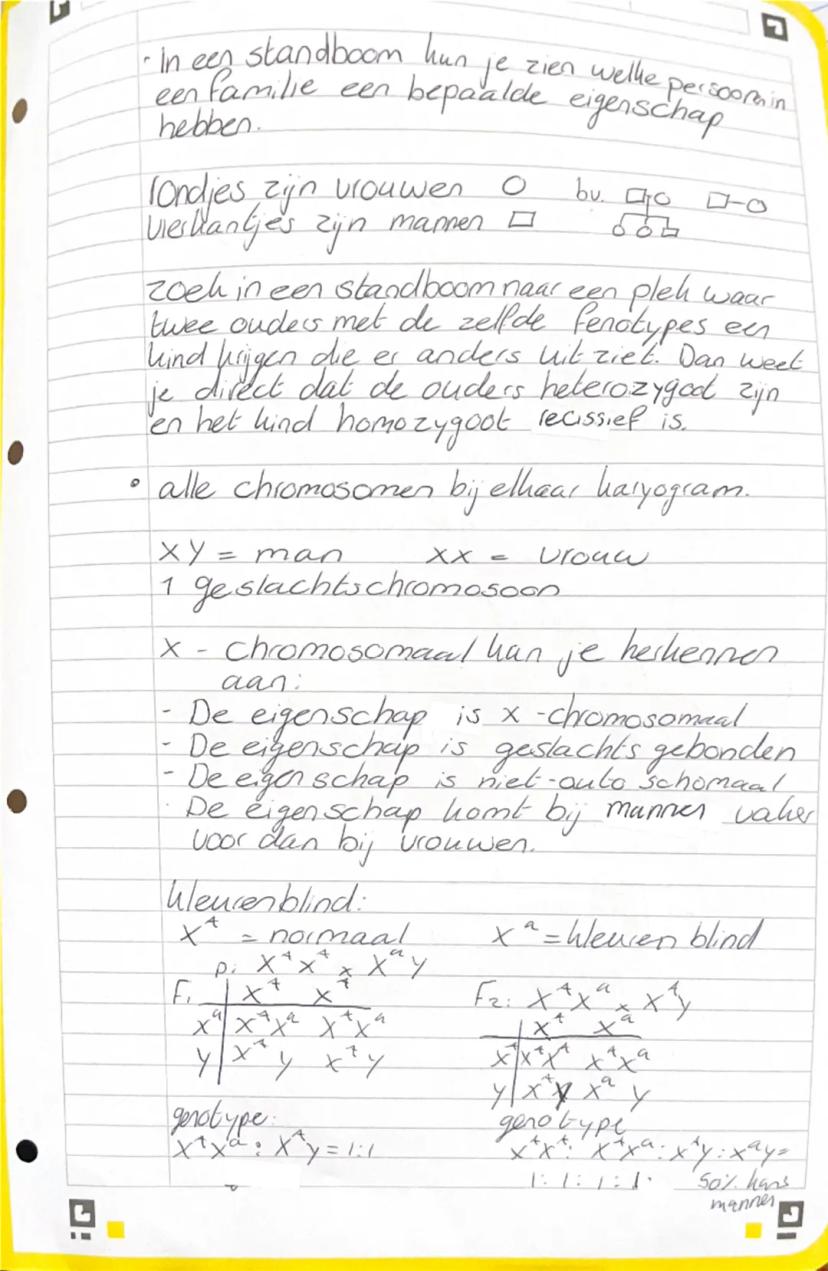 · In een standboom kun je zien welke persoon in
een familie een bepaalde eigenschap
hebben.
rondjes zijn vrouwen ○ bv.
vierkantjes zijn mannen □
zoek in een standboom naar een plek waar
twee ouders met de zelfde fenotypes een
kind krijgen die er anders uit ziet. Dan weet
je direct dat de ouders heterozygoot zijn
en het kind homozygoot recissief is.
• alle chromosomen bij elkaar karyogram.
XY = man xx = vrouw
1 geslachtschromosoon
X - chromosomaal kan je herkennen
aan:
- De eigenschap is x-chromosomaal
- De eigenschap is geslachts gebonden
- De eigenschap is niet-auto schomaal
· De eigenschap komt bij mannen vaker
voor dan bij vrouwen.
kleurenblind:
Xᴬ = normaal Xᵃ = kleuren blind
p: XᴬXᴬ x Xᵃy
F₁ Xᴬ Xᴬ F₂: XᴬXᵃ x Xᴬy
Xᵃ XᴬXᵃ XᴬXᵃ Xᴬ Xᵃ
y Xᴬy Xᴬy Xᴬ XᴬXᴬ XᴬXᵃ
y Xᴬy Xᵃ y
genotype: genotype
XᴬXᵃ : Xᴬy = 1:1 XᴬXᴬ : XᴬXᵃ : Xᴬy : Xᵃy =
1 : 1 : 1 : 1. 50% kans
mannen